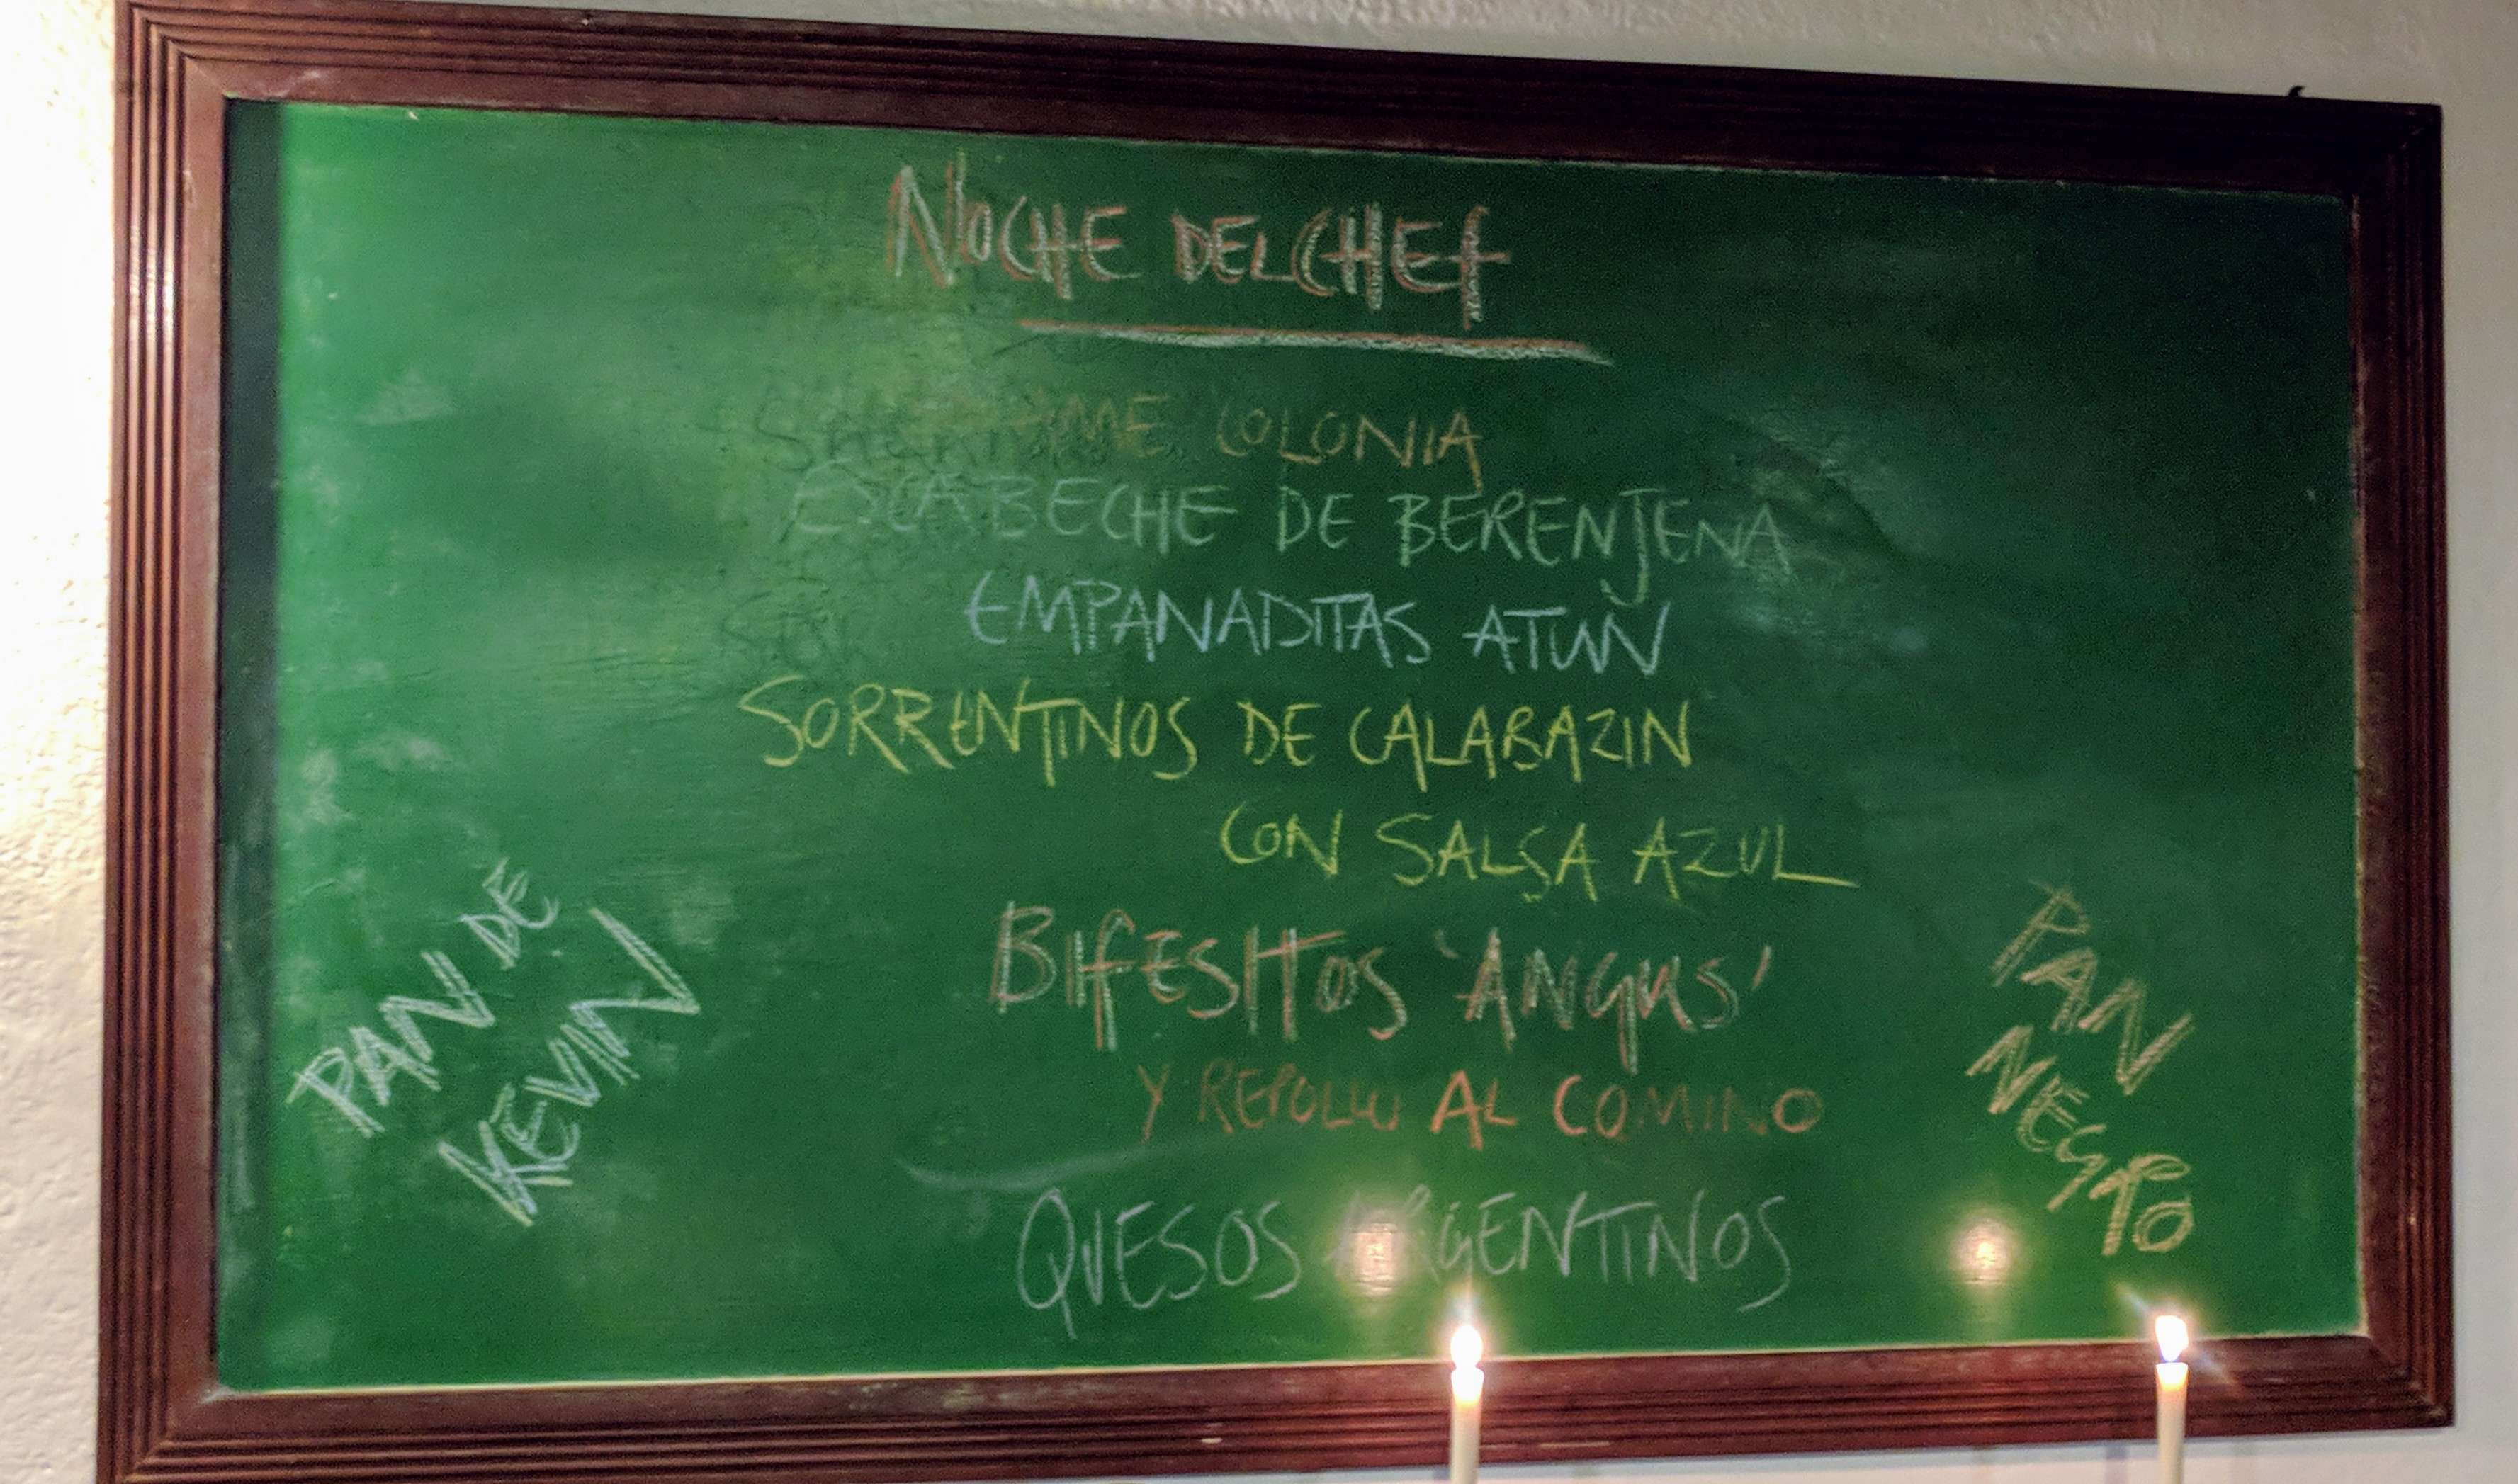 NOCHE DEL CHEF
COLONIA
ESCABECHE DE BERENJENA
EMPANADITAS ATUN
SORRENTINOS DE CALABAZIN
CON SALSA AZUL
BIFESITOS 'ANGUS'
Y REPOLLO AL COMINO
QUESOS ARGENTINOS
PAN DE
KEVIN
PAN
NEGRO